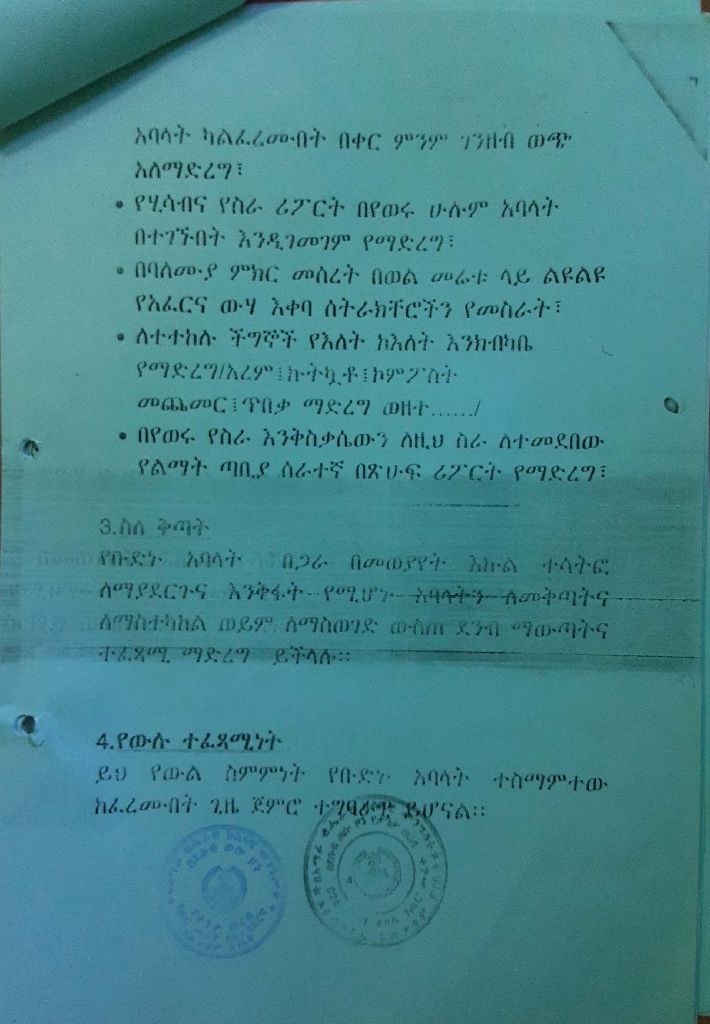 አባላት ካልፈረሙበት በቀር ምንም ገንዘብ ወጭ
አለማድረግ፣
• የሂሳብና የስራ ሪፖርት በየወሩ ሁሉም አባላት
በተገኙበት እንዲገመገም የማድረግ፣
• በባለሙያ ምክር መሰረት በወል መሬቱ ላይ ልዩልዩ
የአፈርና ውሃ እቀባ ስትራክቸሮችን የመስራት፣
• ለተተከሉ ችግኞች የእለት ከእለት እንክብካቤ
የማድረግ/አረም፤ኩትኳቶ፤ኮምፖስት
መጨመር፤ጥበቃ ማድረግ ወዘተ....../
• በየወሩ የስራ እንቅስቃሴውን ለዚህ ስራ ለተመደበው
የልማት ጣቢያ ሰራተኛ በጽሁፍ ሪፖርት የማድረግ፣
3.ስለ ቅጣት
የቡድኑ አባላት በጋራ በመወያየት እኩል ተሳትፎ
ለማያደርጉና እንቅፋት የሚሆኑ አባላትን ለመቅጣትና
ለማስተካከል ወይም ለማስወገድ ውስጠ ደንብ ማውጣትና
ተፈጻሚ ማድረግ ይችላሉ።
4.የውሉ ተፈጻሚነት
ይህ የውል ስምምነት የቡድኑ አባላት ተስማምተው
ከፈረሙበት ጊዜ ጀምሮ ተግባራዊ ይሆናል።